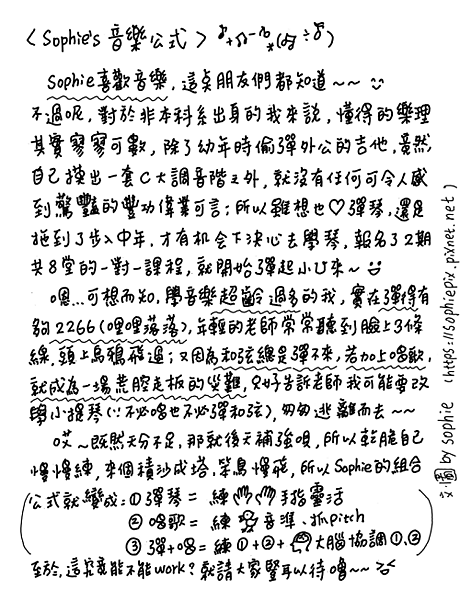 〈Sophie's 音樂公式〉
Sophie喜歡音樂，這點朋友們都知道~~
不過呢，對於非本科系出身的我來說，懂得的樂理
其實寥寥可數，除了幼年時偷彈外公的吉他，竟然
自己摸出一套C大調音階之外，就沒有任何可令人感
到驚豔的豐功偉業可言；所以雖想也♡彈琴，還是
拖到了步入中年，才有机会下決心去學琴，報名了2期
共8堂的一對一課程，就開始彈起小U來~
嗯...可想而知，學音樂超齡過多的我，實在彈得有
夠2266(哩哩落落)，年輕的老師常常聽到臉上3條
線，頭上烏鴉飛過；又因為和弦總是彈不來，若加上唱歌，
就成為一場荒腔走板的災難，只好告訴老師我可能要改
學小提琴(∵不必唱也不必彈和弦)，匆匆逃離而去~~
哎~既然天分不足，那就後天補強唄，所以乾脆自己
慢慢練，來個積沙成塔，笨鳥慢飛，所以Sophie的組合
公式就變成：①彈琴=練手指靈活
②唱歌=練音準、抓pitch
③彈+唱=練①+②+大腦協調①、②
至於，這究竟能不能work？就請大家豎耳以待嚕~~
文/圖 by sophie (https://sophiepix.pixnet.net)